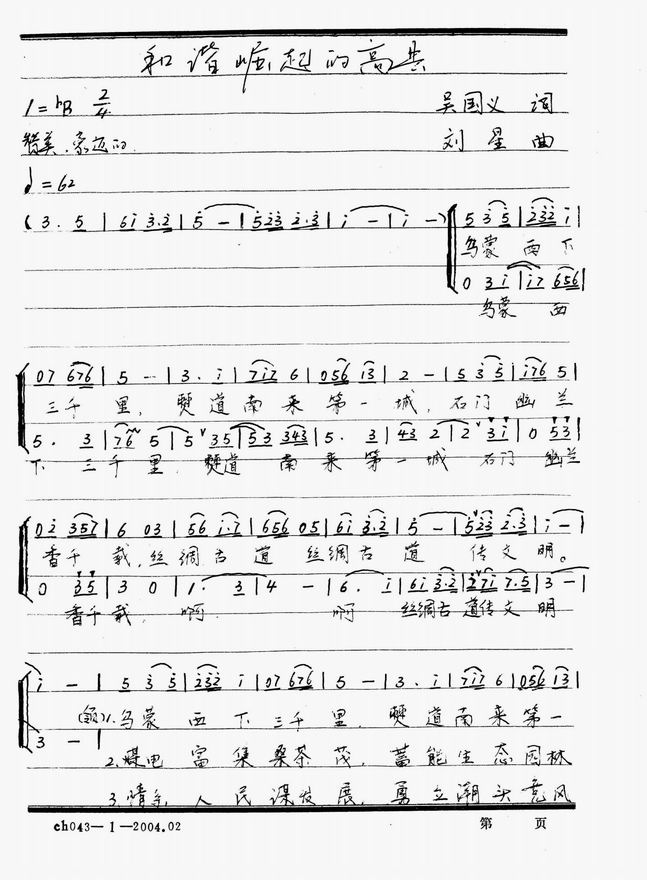 和谐崛起的高县
1=♭B 2/4 吴国义 词
赞美、豪迈的 刘星 曲
♩=62
(3. 5 | 6i 3.2 | 5 - | 523 2.3 | i - | i - ) 5 3 5 | 232 i |
乌蒙西下
0 3 i | i7 656 |
乌蒙西
07 676 | 5 - | 3. i | 7i7 6 | 056 i3 | 2 - | 5 3 5 | i76 5 |
三千里,僰道南来第一城,石门幽兰
5. 3 | 76 5 | 5 35 | 53 343 | 5. 3 | 43 2 | 2 3i | 0 53 |
下三千里,僰道南来第一城 石门幽兰
02 357 | 6 03 | 56 i.7 | 656 05 | 6i 3.2 | 5 - | 523 2.3 | i - |
香千载,丝绸古道丝绸古道传文明。
0 35 | 3 0 | 1. 3 | 4 - | 6. i | 6i 3.2 | 27i 7.5 | 3 - |
香千载,啊 啊 丝绸古道传文明
i - | 5 3 5 | 232 i | 07 676 | 5 - | 3. i | 7i7 6 | 056 i3 |
(领)1.乌蒙西下三千里,僰道南来第一
3 - |
2.煤电富集桑茶茂,蓄能生态园林
3.情系人民谋发展,勇立潮头竞风
ch043—1—2004.02 第 页